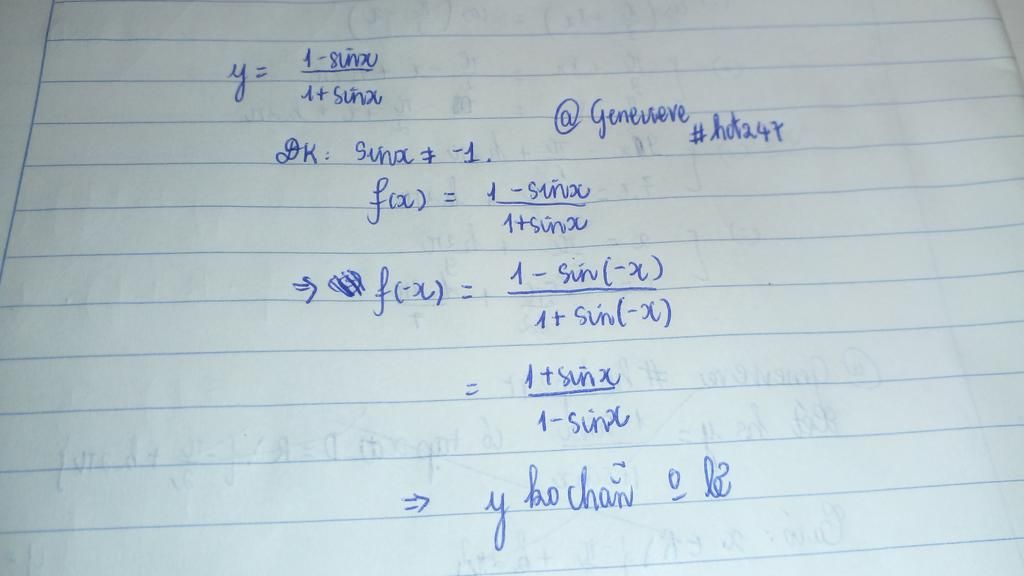 y = \frac{1-sinx}{1+sinx}
@ Genevieve
#hdt247
ĐK: sinx ≠ -1.
f(x) = \frac{1-sinx}{1+sinx}
⇒ f(-x) = \frac{1-sin(-x)}{1+sin(-x)}
= \frac{1+sinx}{1-sinx}
⇒ y ko chẵn o lẻ